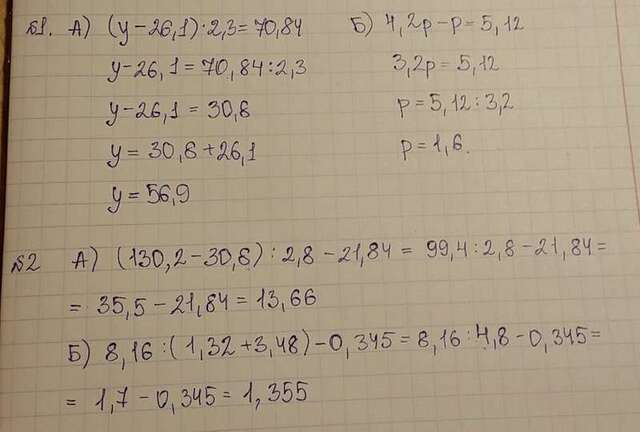 №1. А) (y-26,1)·2,3=70,84 Б) 4,2p-p=5,12
y-26,1=70,84:2,3 3,2p=5,12
y-26,1=30,8 p=5,12:3,2
y=30,8+26,1 p=1,6.
y=56,9
№2 А) (130,2-30,8):2,8-21,84=99,4:2,8-21,84=
=35,5-21,84=13,66
Б) 8,16:(1,32+3,48)-0,345=8,16:4,8-0,345=
=1,7-0,345=1,355